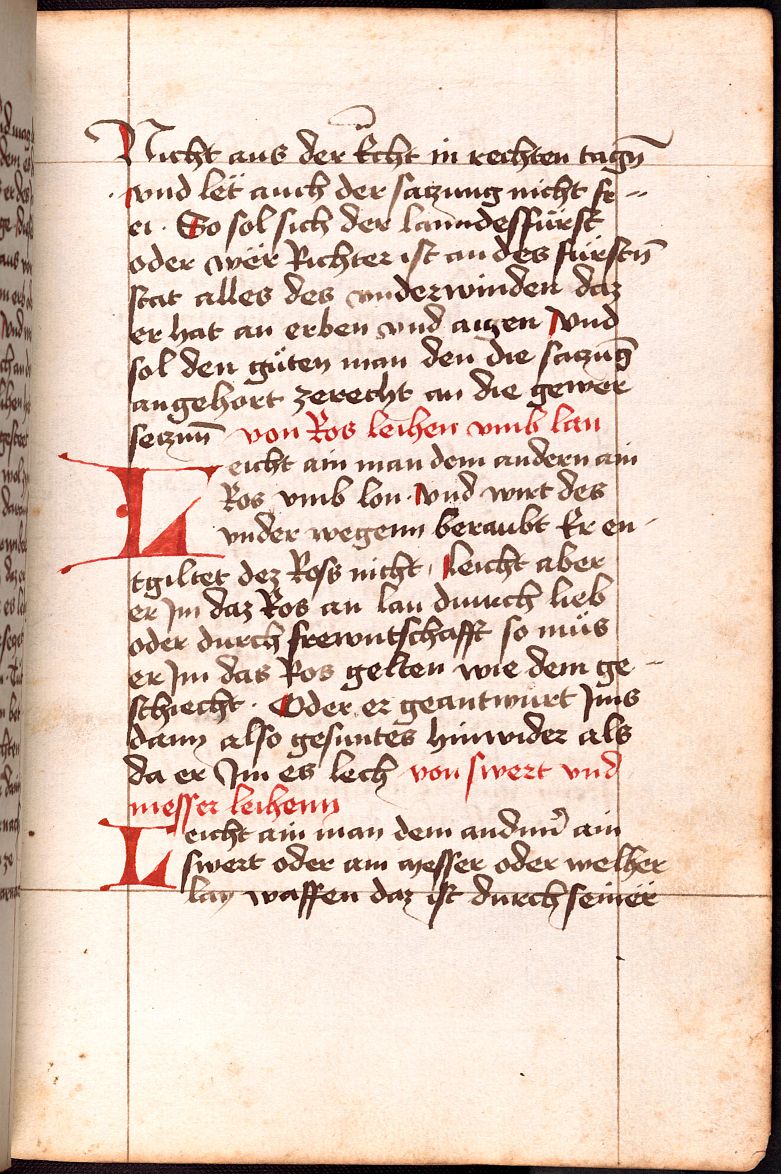 Nicht aus der ächt in rechten tagn̄
vnd let auch der satzung nicht fr-
ei. So sol sich der lanndesfürst
oder wër Richter ist an des fürstn̄
stat alles des vnderwinden daz
er hat an erben vnd aigen Vnd
sol den güten man den die satzūg
angehort zerecht an die gewer
setznn̄ von Ros leihen vmb lan
Leicht ain man dem andern ain
Ros vmb lon. vnd wirt des
vnder wegenn beraubt Er en-
tgiltet dez Ross nicht, leicht aber
er Jm daz Ros an lan durch lieb
oder durch frewntschafft so müs
er Jm das Ros gelten wie dem ge-
schiecht. Oder er geantwurt Jms
dann also gesuntes hinwider als
da er Jm es lech von swert vnd
messer leihenn
Leicht ain man dem andrn̄ ain
swert oder ain messer oder welher
lay waffen daz ist durch seiner